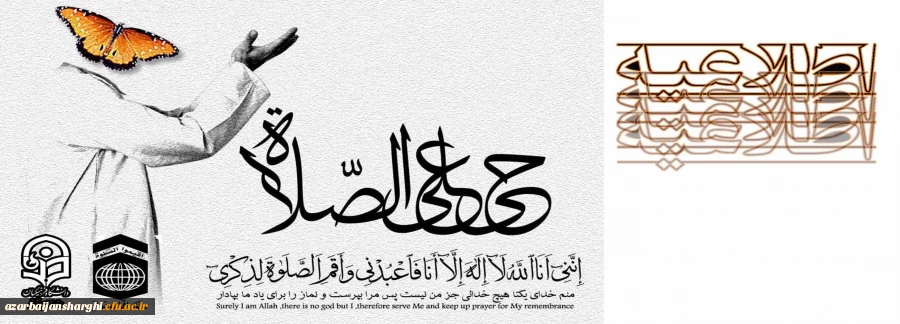 اطلاعیه
حی علی الصلاة
إِنَّنِي أَنَا اللَّهُ لَا إِلَهَ إِلَّا أَنَا فَاعْبُدْنِي وَأَقِمِ الصَّلَوةَ لِذِكْرِي
منم خدای یکتا هیچ خدائی جز من نیست پس مرا بپرست و نماز را برای یاد ما بپادار
Surely I am Allah ,there is no god but I ,therefore serve Me and keep up prayer for My remembrance
اقیموا الصلوة
azarbaijansharghi.cfu.ac.ir